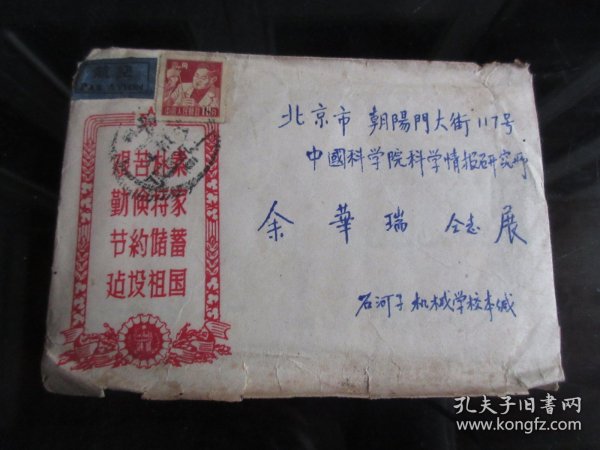 PAR AVION
艱苦朴素
勤儉持家
节約儲蓄
迠設祖国
北京市 朝陽門大街117号
中國科学院科学情报研究所
余 華 瑞 仝志 展
石河子 机械学校李缄
孔夫子旧书网
www.kongfz.com